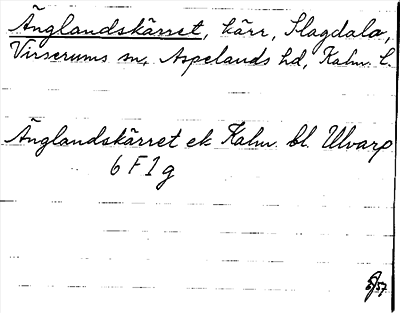 Änglandskärret, kärr, Slagdala,
Virserums sn, Aspelands hd, Kalm. l.
Änglandskärret ek Kalm. bl. Ulvarp
6 F 1 g